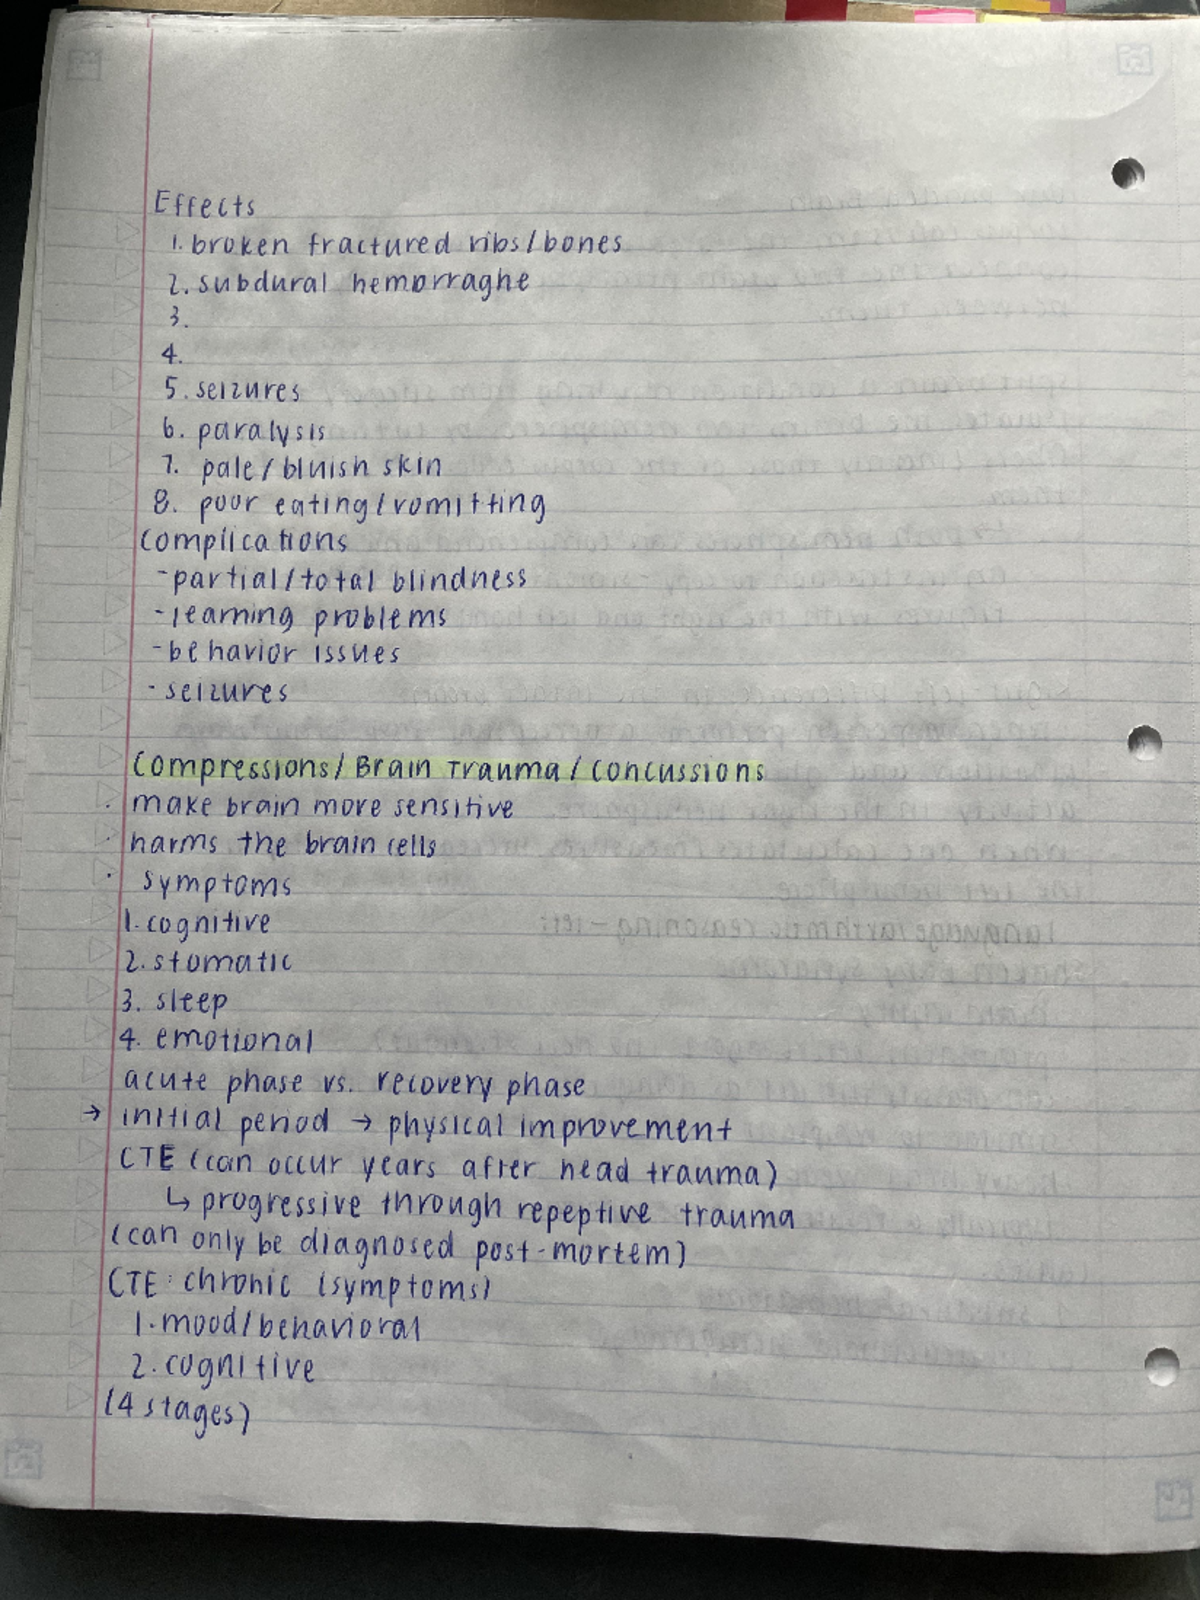 Effects
1. broken fractured ribs/bones
2. subdural hemorraghe
3.
4.
5. seizures
6. paralysis
7. pale/bluish skin
8. poor eating/vomitting
Complications
-partial/total blindness
-learning problems
-behavior issues
-seizures
Compressions/Brain Trauma/Concussions
· make brain more sensitive
· harms the brain cells
· symptoms
1. cognitive
2. stomatic
3. sleep
4. emotional
acute phase vs. recovery phase
→ initial period → physical improvement
CTE (can occur years after head trauma)
↳ progressive through repeptive trauma
(can only be diagnosed post-mortem)
CTE: chronic (symptoms)
1. mood/behavioral
2. cognitive
(4 stages)